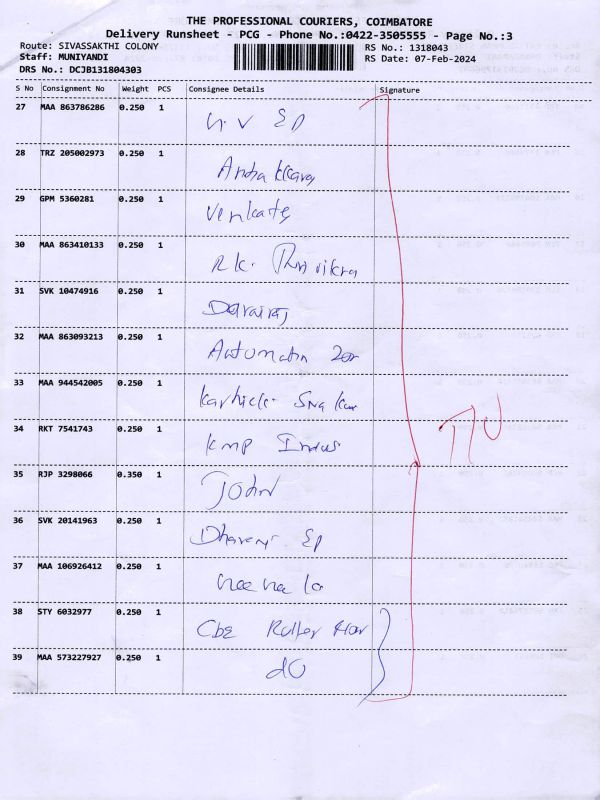 THE PROFESSIONAL COURIERS, COIMBATORE
Delivery Runsheet - PCG - Phone No.:0422-3505555 - Page No.:3
Route: SIVASSAKTHI COLONY RS No.: 1318043
Staff: MUNIYANDI RS Date: 07-Feb-2024
DRS No.: DCJB131804303
S No Consignment No Weight PCS Consignee Details Signature
27 MAA 863786286 0.250 1
28 TRZ 205002973 0.250 1
29 GPM 5360281 0.250 1 Venkates
30 MAA 863410133 0.250 1 R.K.
31 SVK 10474916 0.250 1
32 MAA 863093213 0.250 1
33 MAA 944542005 0.250 1
34 RKT 7541743 0.250 1 KMP Indus
35 RJP 3298066 0.350 1 John
36 SVK 20141963 0.250 1
37 MAA 106926412 0.250 1
38 STY 6032977 0.250 1 Cbe Roller
39 MAA 573227927 0.250 1 do